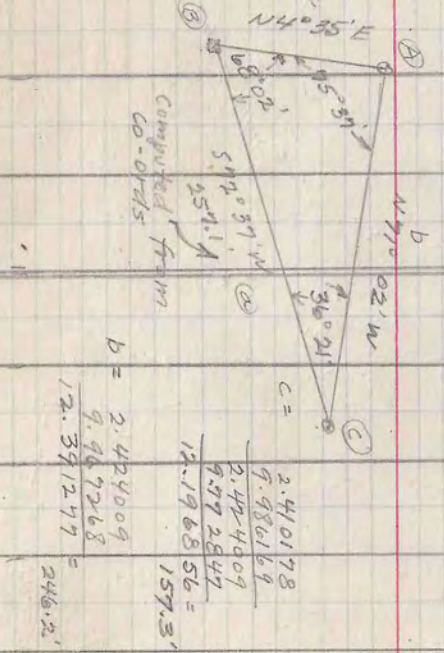 Ⓐ
N4°35'E
Ⓑ
75°37'
68°02'
b
N71°02'W
36°21'
Ⓒ
S72°37'W
257.14
ⓐ
Computed from
Co-ords
c =
2.410178
9.986169
2.424009
9.772847
12.196856 =
157.3'
b = 2.424009
9.967268
12.391277 =
246.2'